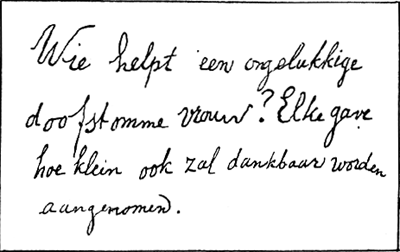 Wie helpt een ongelukkige
doofstomme vrouw? Elke gave
hoe klein ook zal dankbaar worden
aangenomen.